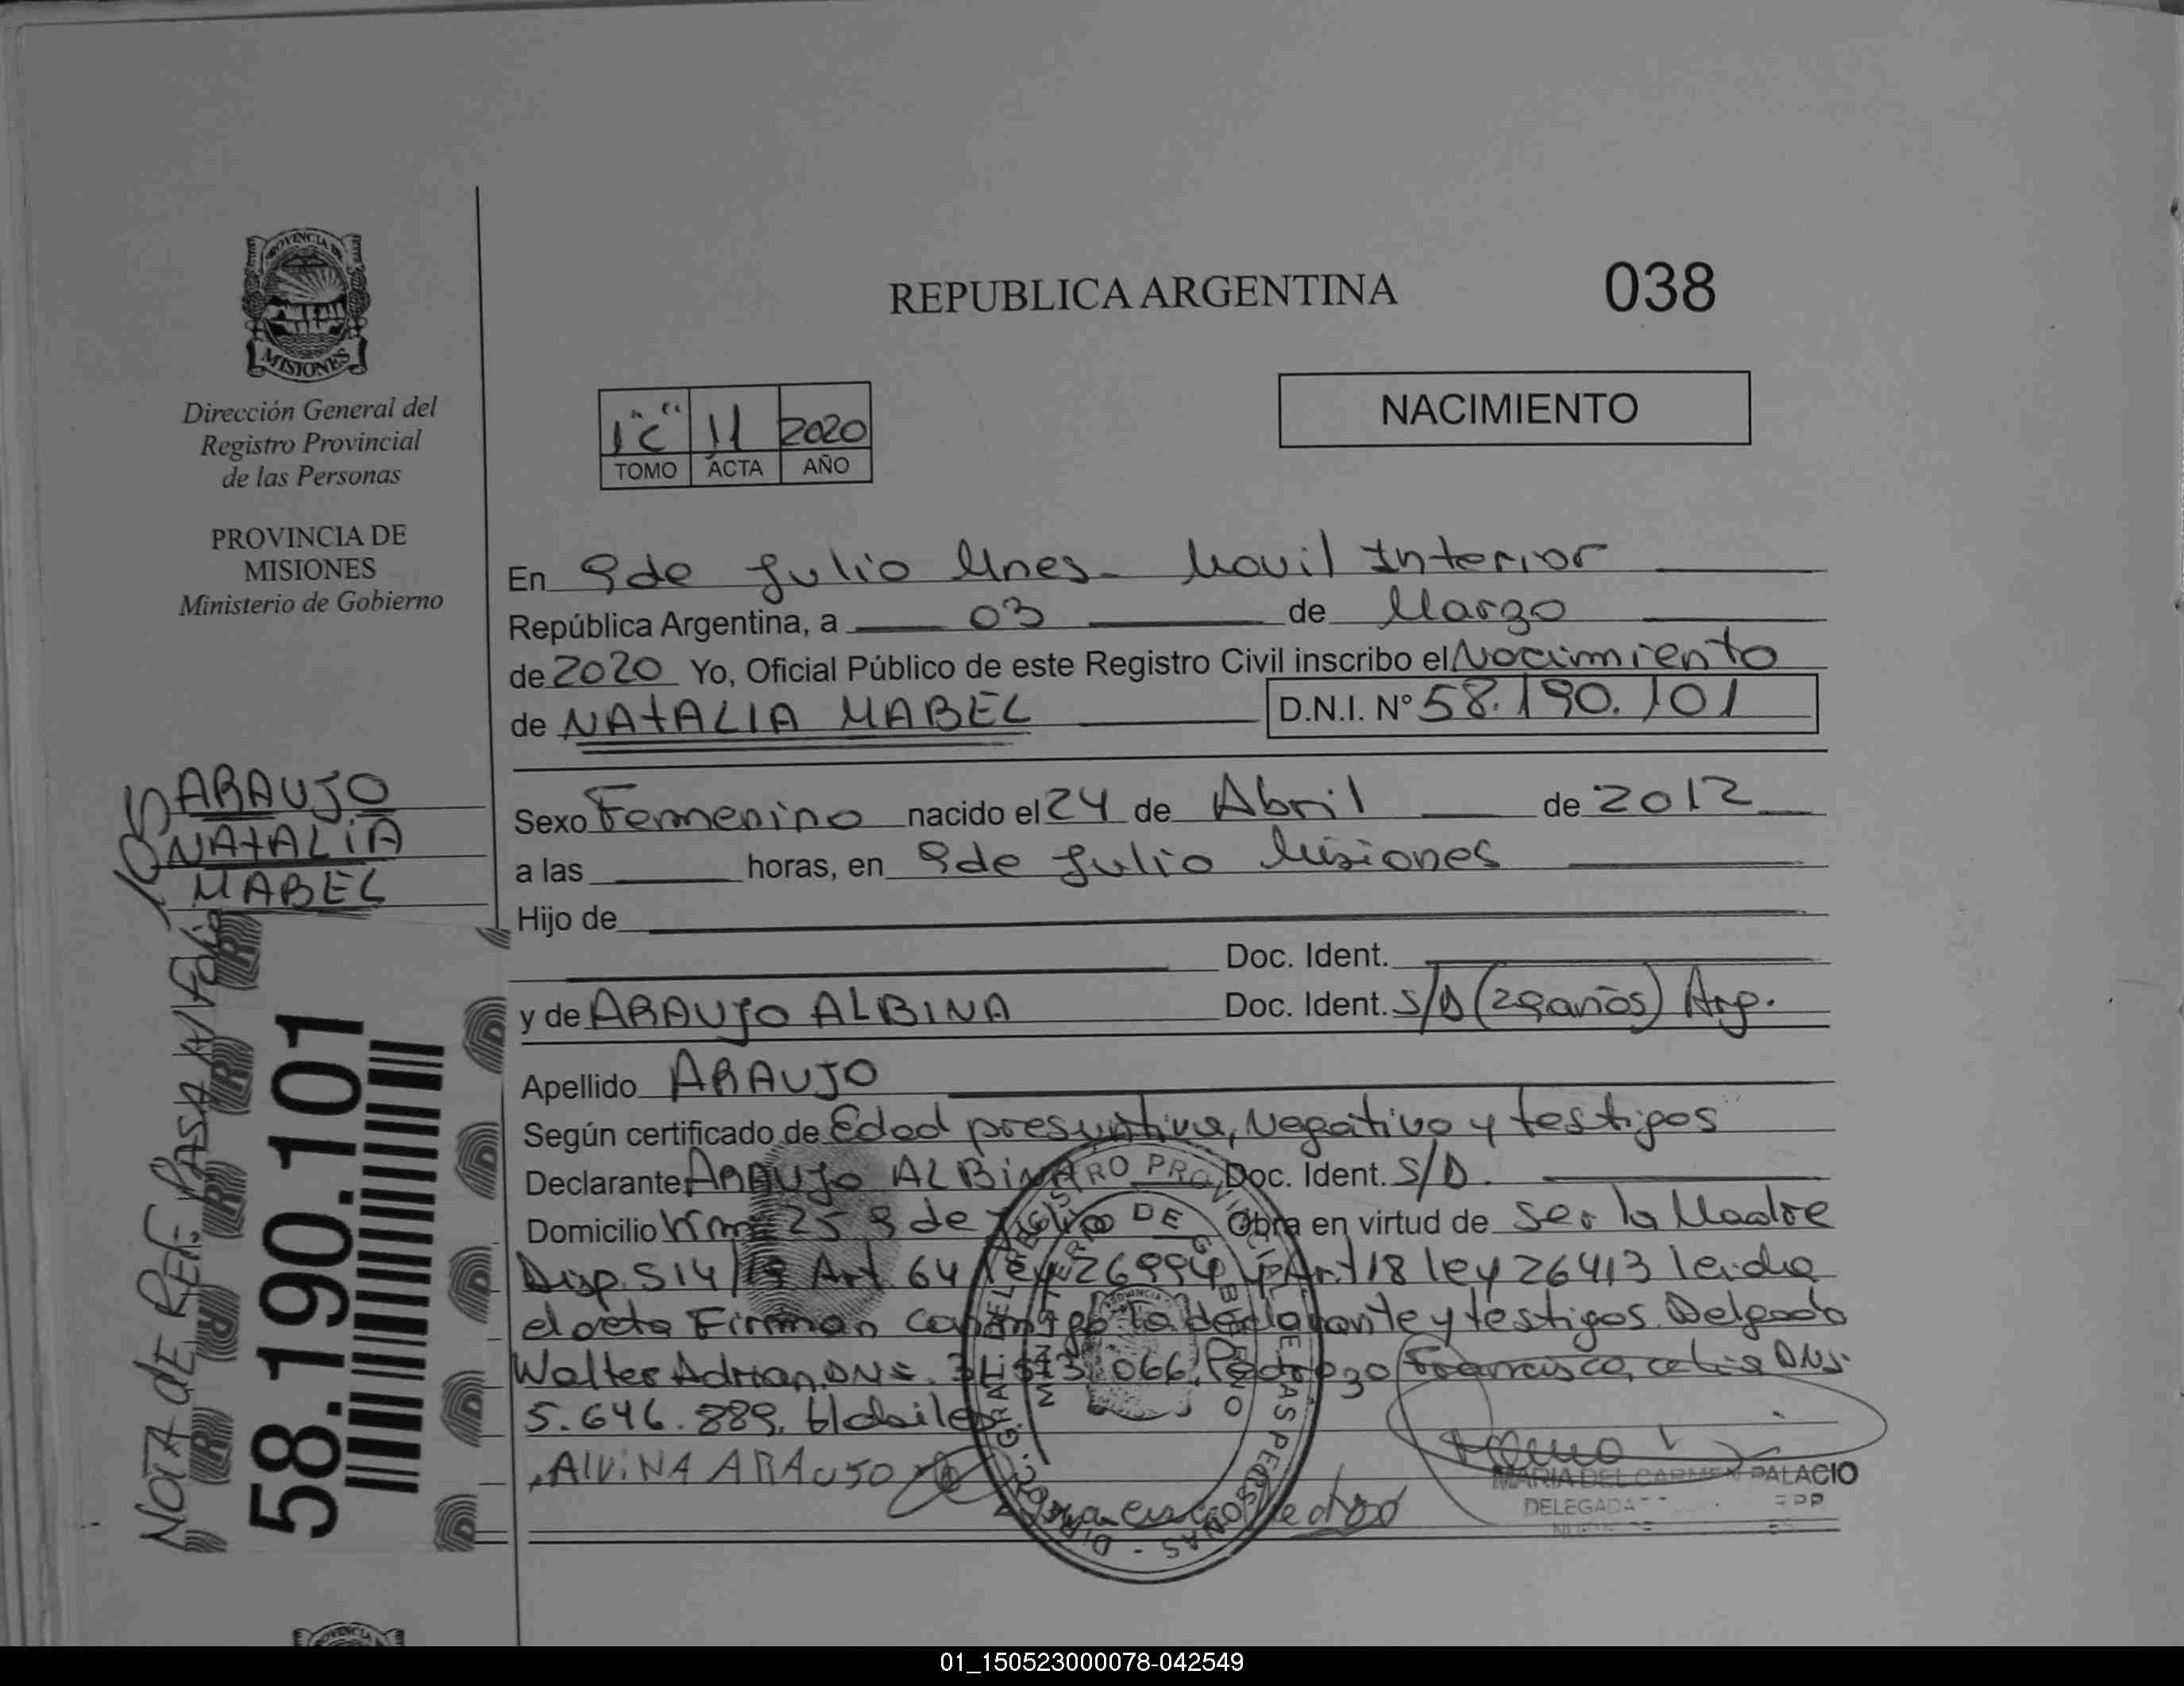 PROVINCIA DE
MISIONES
Dirección General del
Registro Provincial
de las Personas
PROVINCIA DE
MISIONES
Ministerio de Gobierno
ARAUJO
NATALIA
MABEL
NOTA DE REF. PASA A
58.190.101
REPUBLICA ARGENTINA
038
NACIMIENTO
1 "C" 11 2020
TOMO ACTA AÑO
En 9 de Julio Mnes- Movil Interior
República Argentina, a 03 de Marzo
de 2020 Yo, Oficial Público de este Registro Civil inscribo el Nacimiento
de NATALIA MABEL D.N.I. Nº 58.190.101
Sexo Femenino nacido el 24 de Abril de 2012
a las horas, en 9 de Julio Misiones
Hijo de
Doc. Ident.
y de ARAUJO ALBINA Doc. Ident. S/D (29 años) Arg.
Apellido ARAUJO
Según certificado de Edad presuntiva, Negativo y testigos
Declarante ARAUJO ALBINA Doc. Ident. S/D
Domicilio Km 25 9 de Julio Obra en virtud de ser la Madre
Disp. 514/ Art. 64 ley 26994 y Art 18 ley 26413 leida
el acta Firman conmigo la declarante y testigos Delgado
Walter Adrian DNI. 066 Pedrozo Francisco, DNI.
5.646.889. Habiles
ALVINA ARAUJO
MARIA DEL CARMEN PALACIO
DELEGADA
01_150523000078-042549